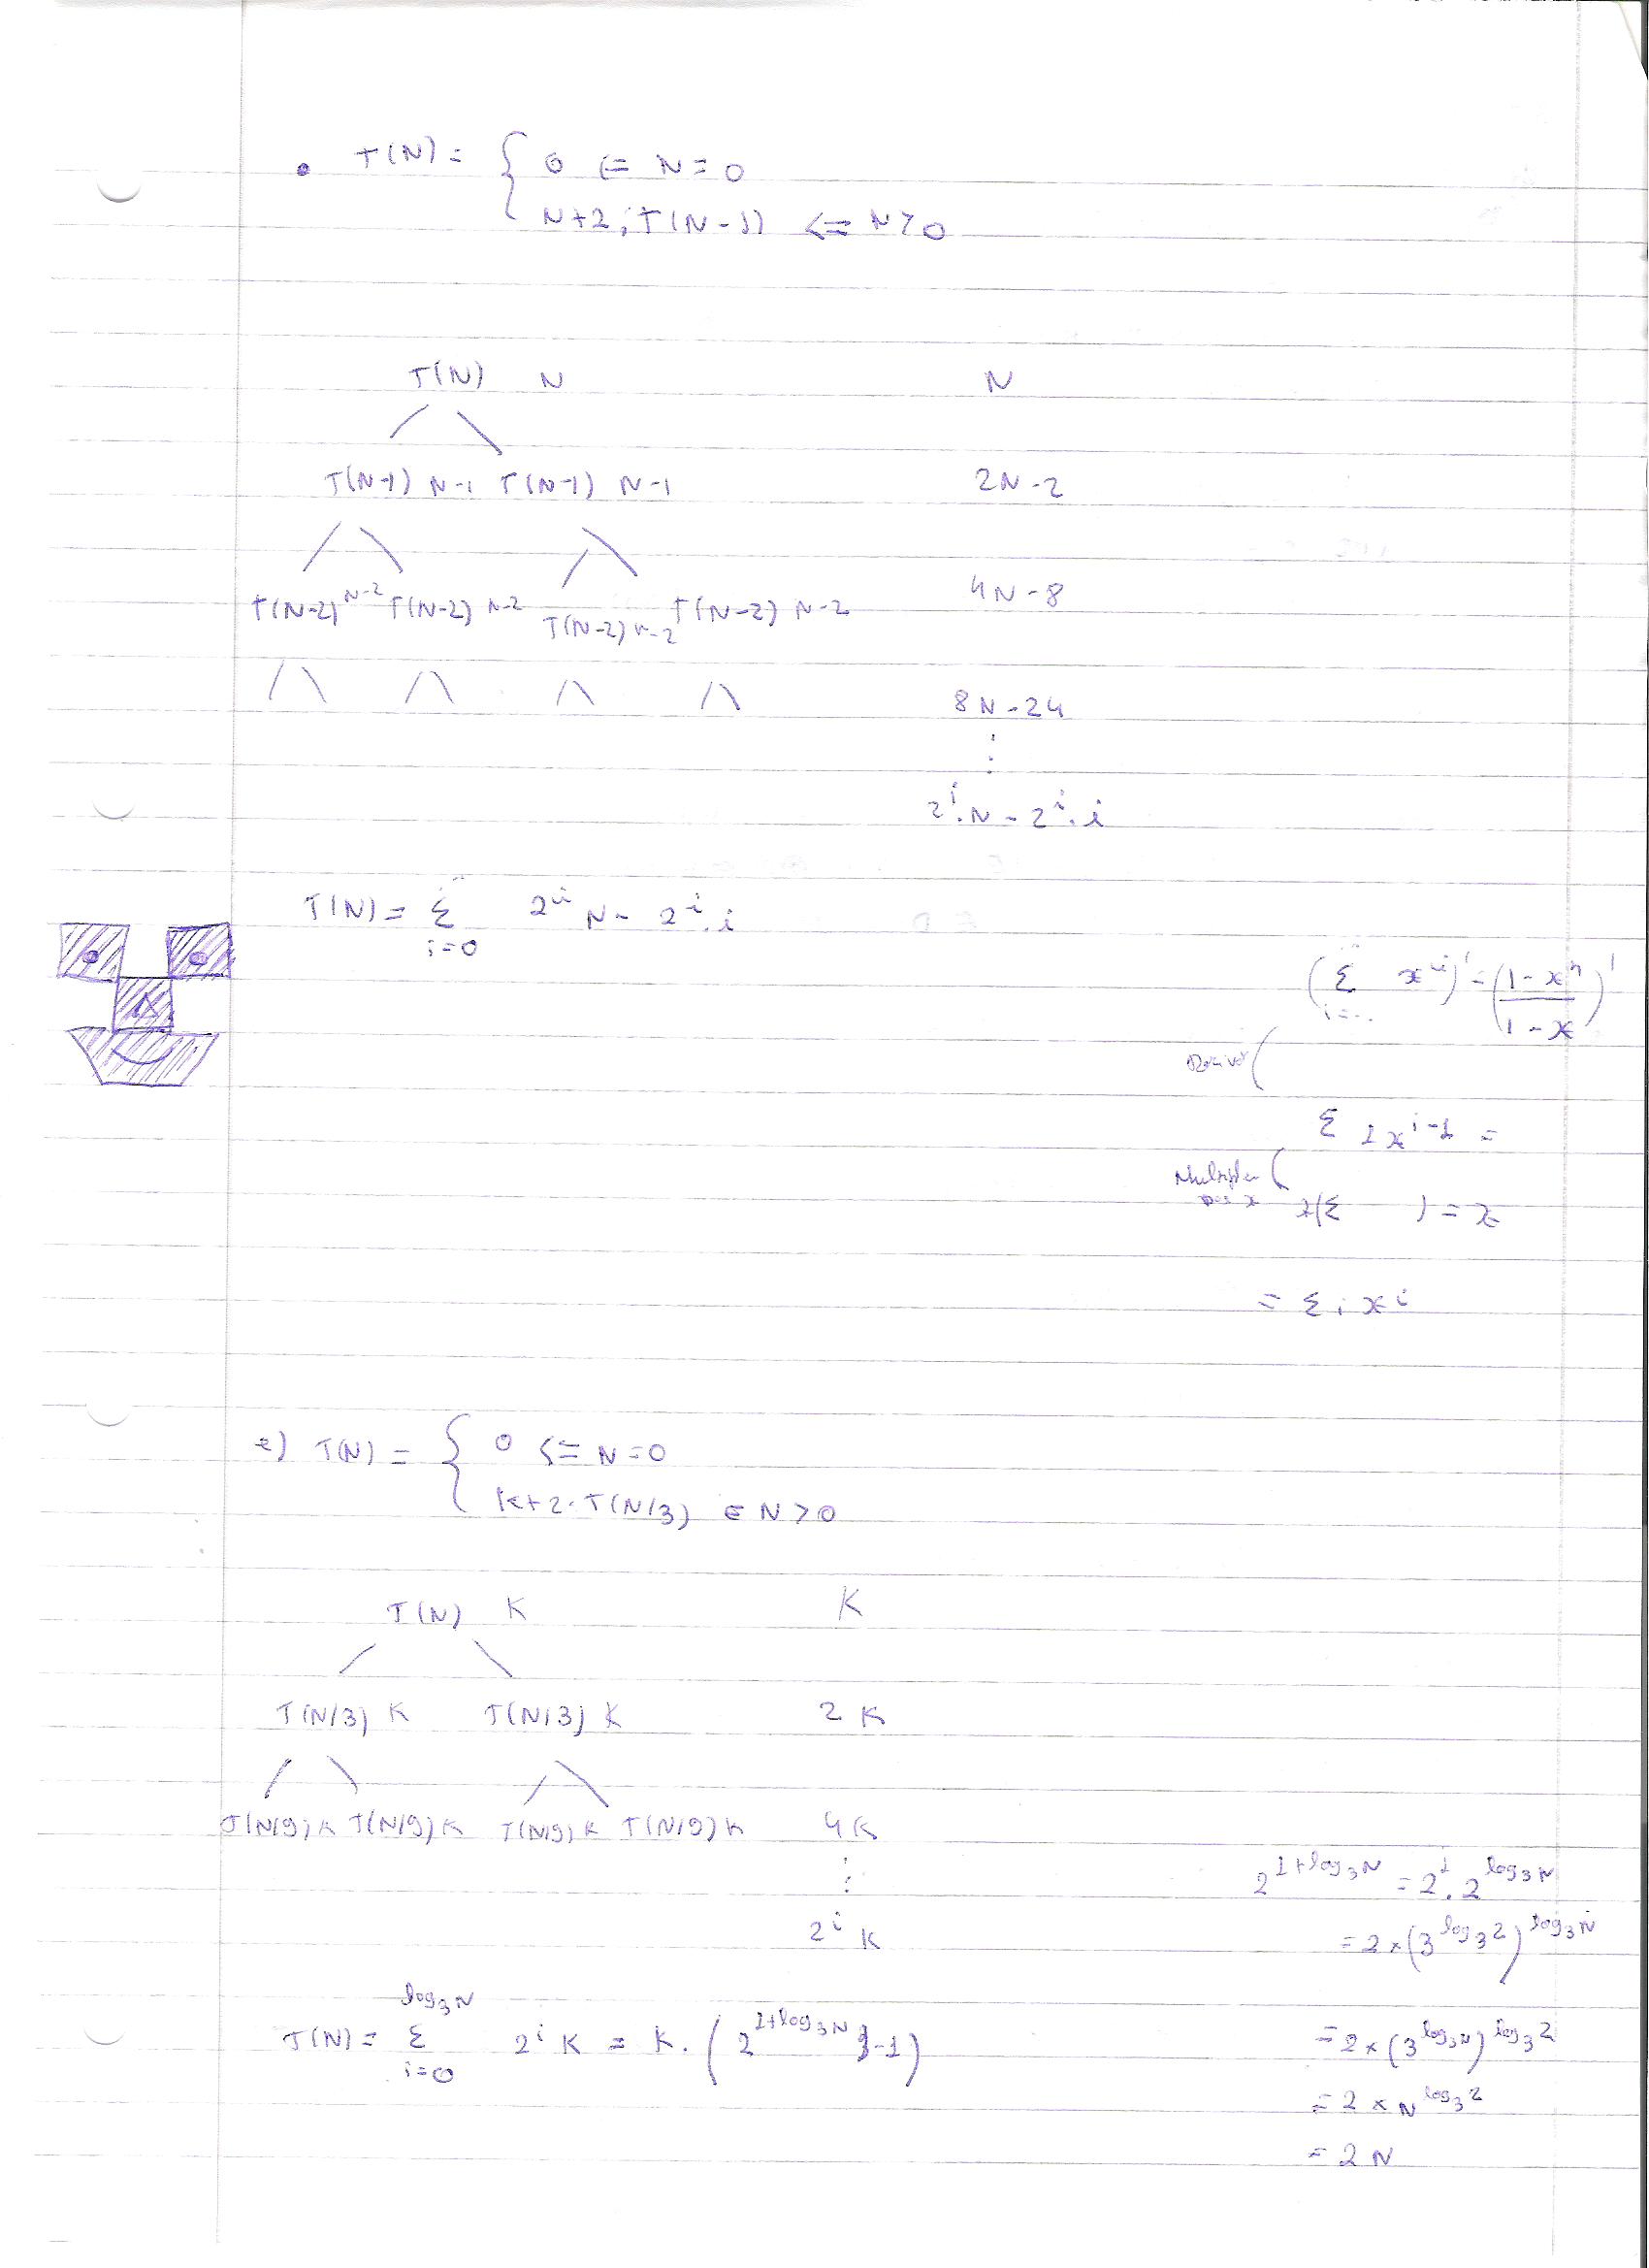 • T(N) = { 0 ⇐ N = 0
N+2;T(N-1) <= N>0
T(N) N N
T(N-1) N-1 T(N-1) N-1 2N-2
T(N-2) N-2 T(N-2) N-2 T(N-2) N-2 T(N-2) N-2 4N-8
8N-24
⋮
2^i.N - 2^i.i
T(N) = Σ i=0 2^i N - 2^i.i
(Σ i=.. x^i)' = ((1-x^n)/(1-x))'
Σ 1x^(i-1) =
x(Σ ) = x
= Σ i x^i
e) T(N) = { 0 <= N=0
K+2.T(N/3) ⇐ N>0
T(N) K K
T(N/3) K T(N/3) K 2K
T(N/9) K T(N/9) K T(N/9) K T(N/9) K 4K
⋮
2^i K
T(N) = Σ i=0 log₃N 2^i K = K.(2^(1+log₃N) -1)
2^(1+log₃N) = 2^1.2^(log₃N)
= 2×(3^(log₃2))^(log₃N)
= 2×(3^(log₃N))^(log₃2)
= 2×N^(log₃2)
= 2N